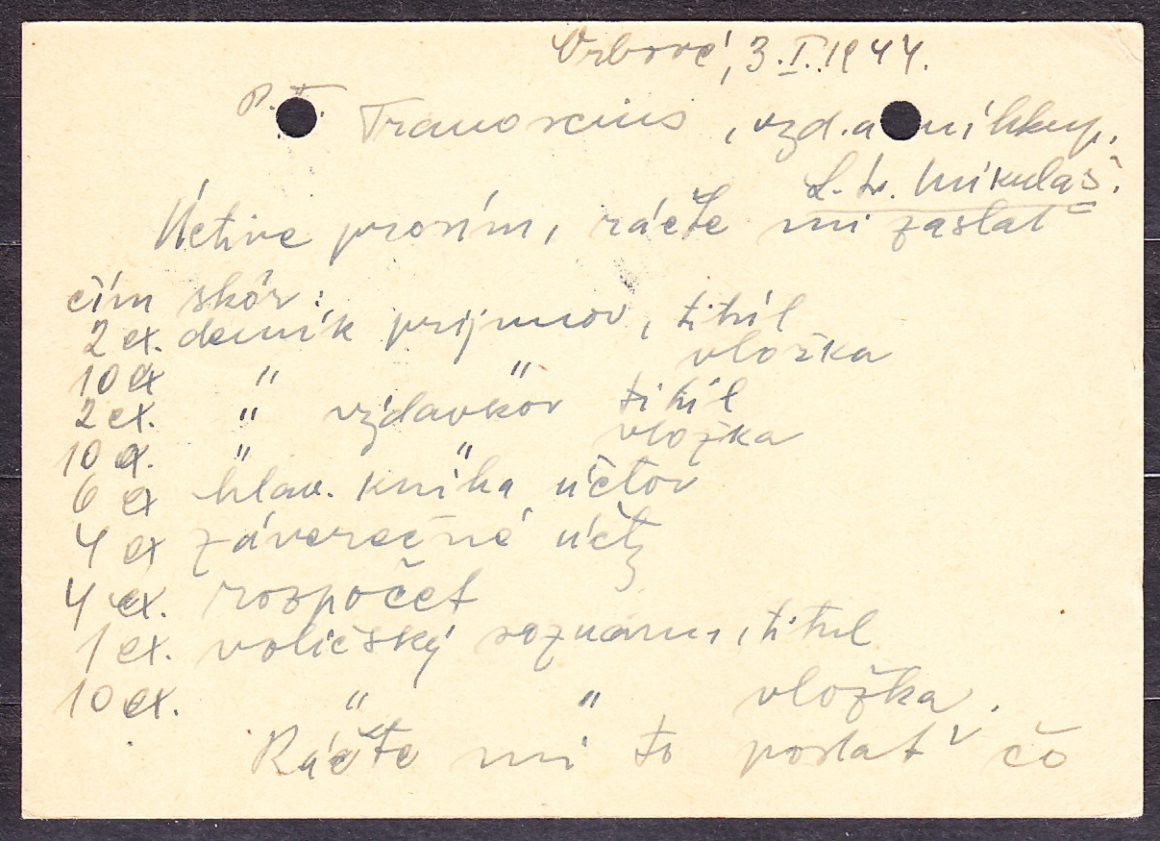 Vrbové, 3.I.1944.
P. T. Tranoscius, vzd. a níhkup.
L. Sv. Mikuláš.
Úctive prosím, ráčte mi zaslať
čím skôr:
2 ex. denník príjmov, titúl
10 ex " " vložka
2 ex. " výdavkov titúl
10 ex. " " vložka
6 ex hlav. kniha účtov
4 ex záverečné účty
4 ex. rozpočet
1 ex. voličský soznam, titul
10 ex. " " vložka.
Ráčte mi to poslať čo